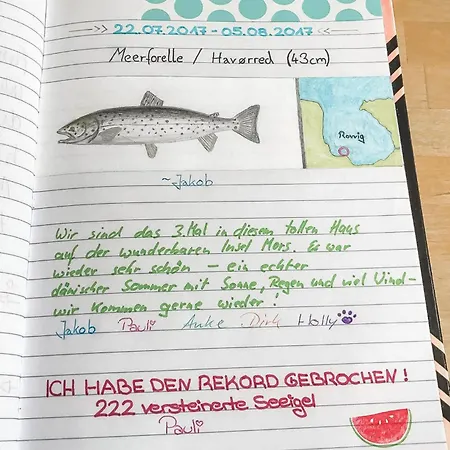 >> 22.07.2017 - 05.08.2017 <<
Meerforelle / Havørred (43cm)
Rovvig
~Jakob
Wir sind das 3. Mal in diesem tollen Haus
auf der wunderbaren Insel Mors. Es war
wieder sehr schön – ein echter
dänischer Sommer mit Sonne, Regen und viel Wind –
wir kommen gerne wieder!
Jakob Pauli Anke Dirk Holly
ICH HABE DEN REKORD GEBROCHEN!
222 versteinerte Seeigel
Pauli